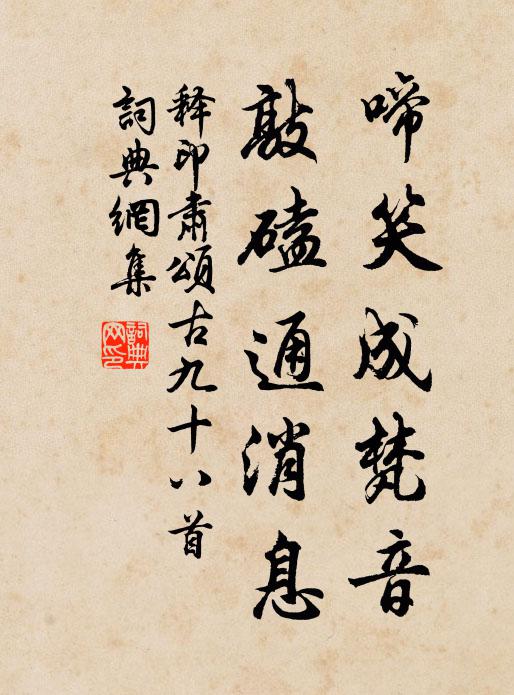 啼笑成梵音
敲磕通消息
释印肃颂古九十八首
詞典網集
詞典网印